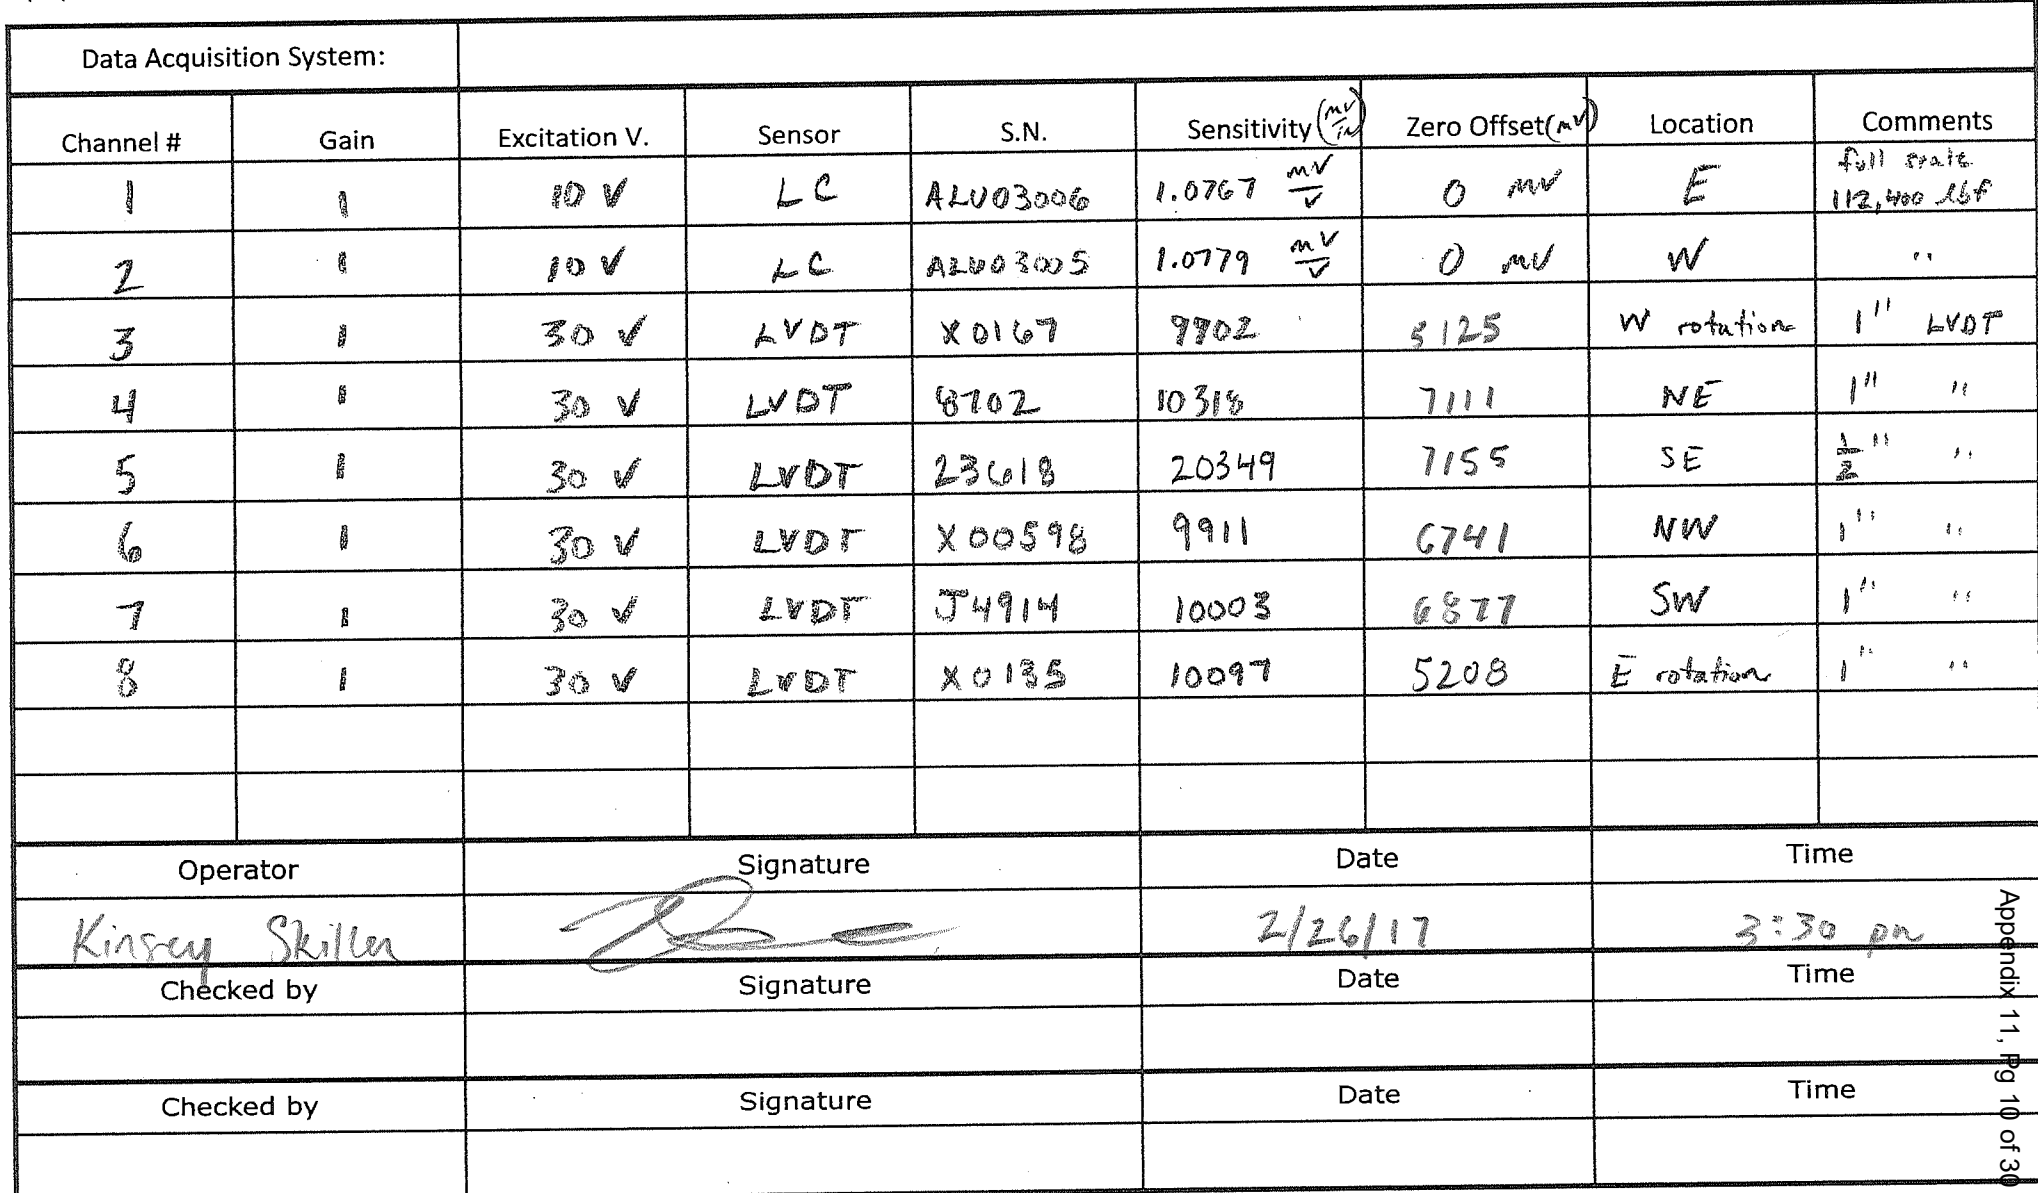 Data Acquisition System:
Channel # Gain Excitation V. Sensor S.N. Sensitivity (mV/in) Zero Offset (mV) Location Comments
1 1 10 V LC ALU03006 1.0767 mV/V 0 mV E full scale 112,400 lbf
2 1 10 V LC ALU03005 1.0779 mV/V 0 mV W "
3 1 30 V LVDT X0167 9902 5125 W rotation 1" LVDT
4 1 30 V LVDT 8702 10318 7111 NE 1" "
5 1 30 V LVDT 23618 20349 7155 SE 1/2" "
6 1 30 V LVDT X00598 9911 6741 NW 1" "
7 1 30 V LVDT J4914 10003 6877 SW 1" "
8 1 30 V LVDT X0135 10097 5208 E rotation 1" "
Operator Signature Date Time
Kinsey Skillen 2/26/17 3:30 pm
Checked by Signature Date Time
Checked by Signature Date Time
Appendix 11, Pg 10 of 30